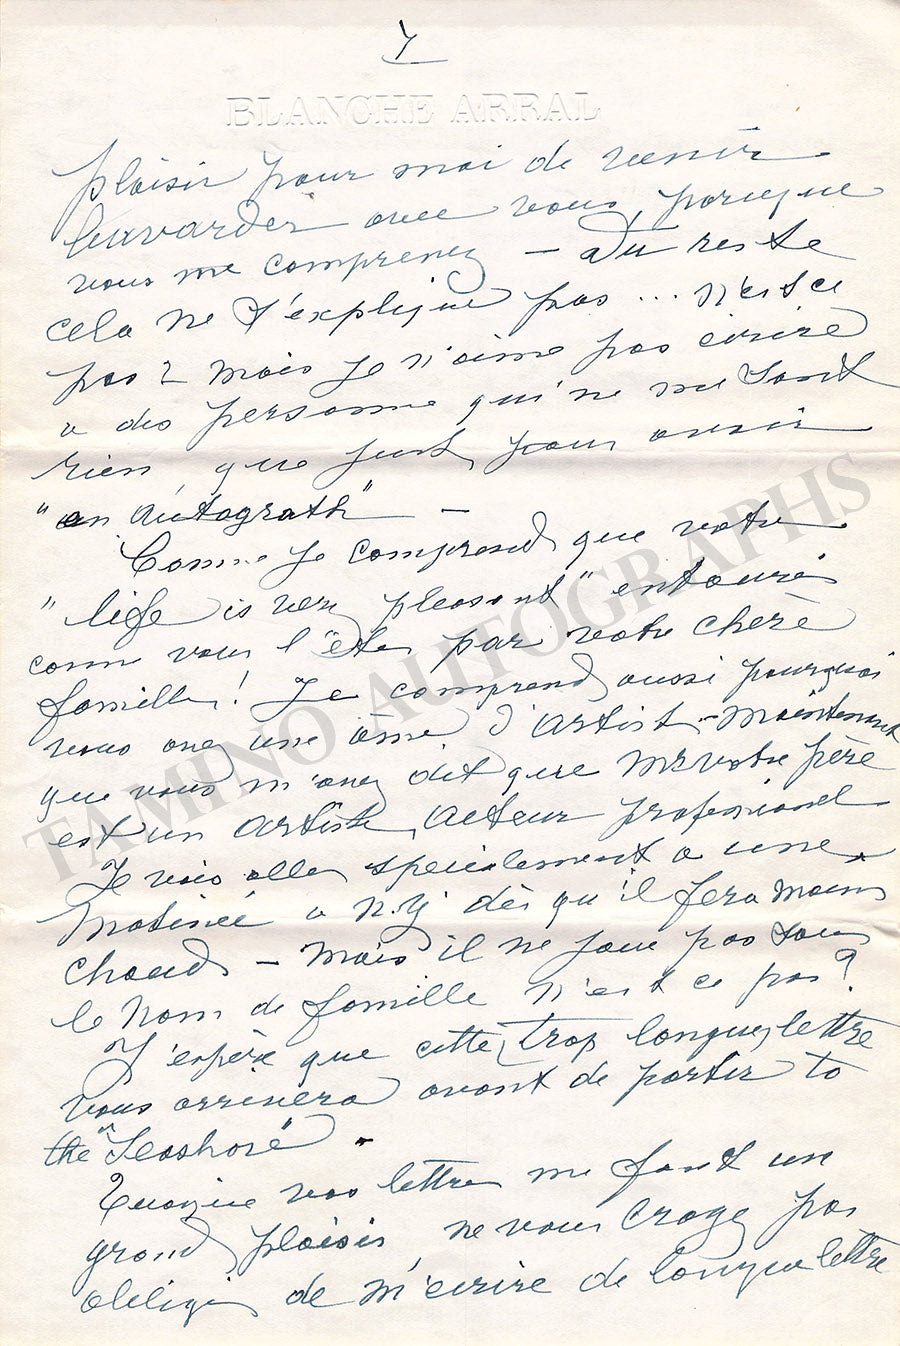 7
BLANCHE ARRAL
plaisir pour moi de venir
bavarder avec vous, parceque
vous me comprenez – Du reste
cela ne s'explique pas ... n'est ce
pas ? mais je n'aime pas écrire
a des personne qui ne me sont
rien, que just pour avoir
"an autograth" –
Comme je comprend que votre
"life is very pleasant" entouré
comme vous l'êtes par votre chère
famille! Je comprend aussi pourquoi
vous avez une âme d'artist – maintenant
que vous m'avez dit que Mr votre père
est un artiste, acteur professionel
Je vais aller specialement a une
matineé a N.Y. dès qu'il fera moins
chaud – mais il ne joue pas sous
le nom de famille n'est ce pas?
J'espère que cette, trop longue, lettre
vous arrivera avant de partir to
the "Seashore".
Quoique vos lettre me font un
grand plaisir, ne vous croyez pas
obligé de m'ecrire de longue lettre
TAMINO AUTOGRAPHS